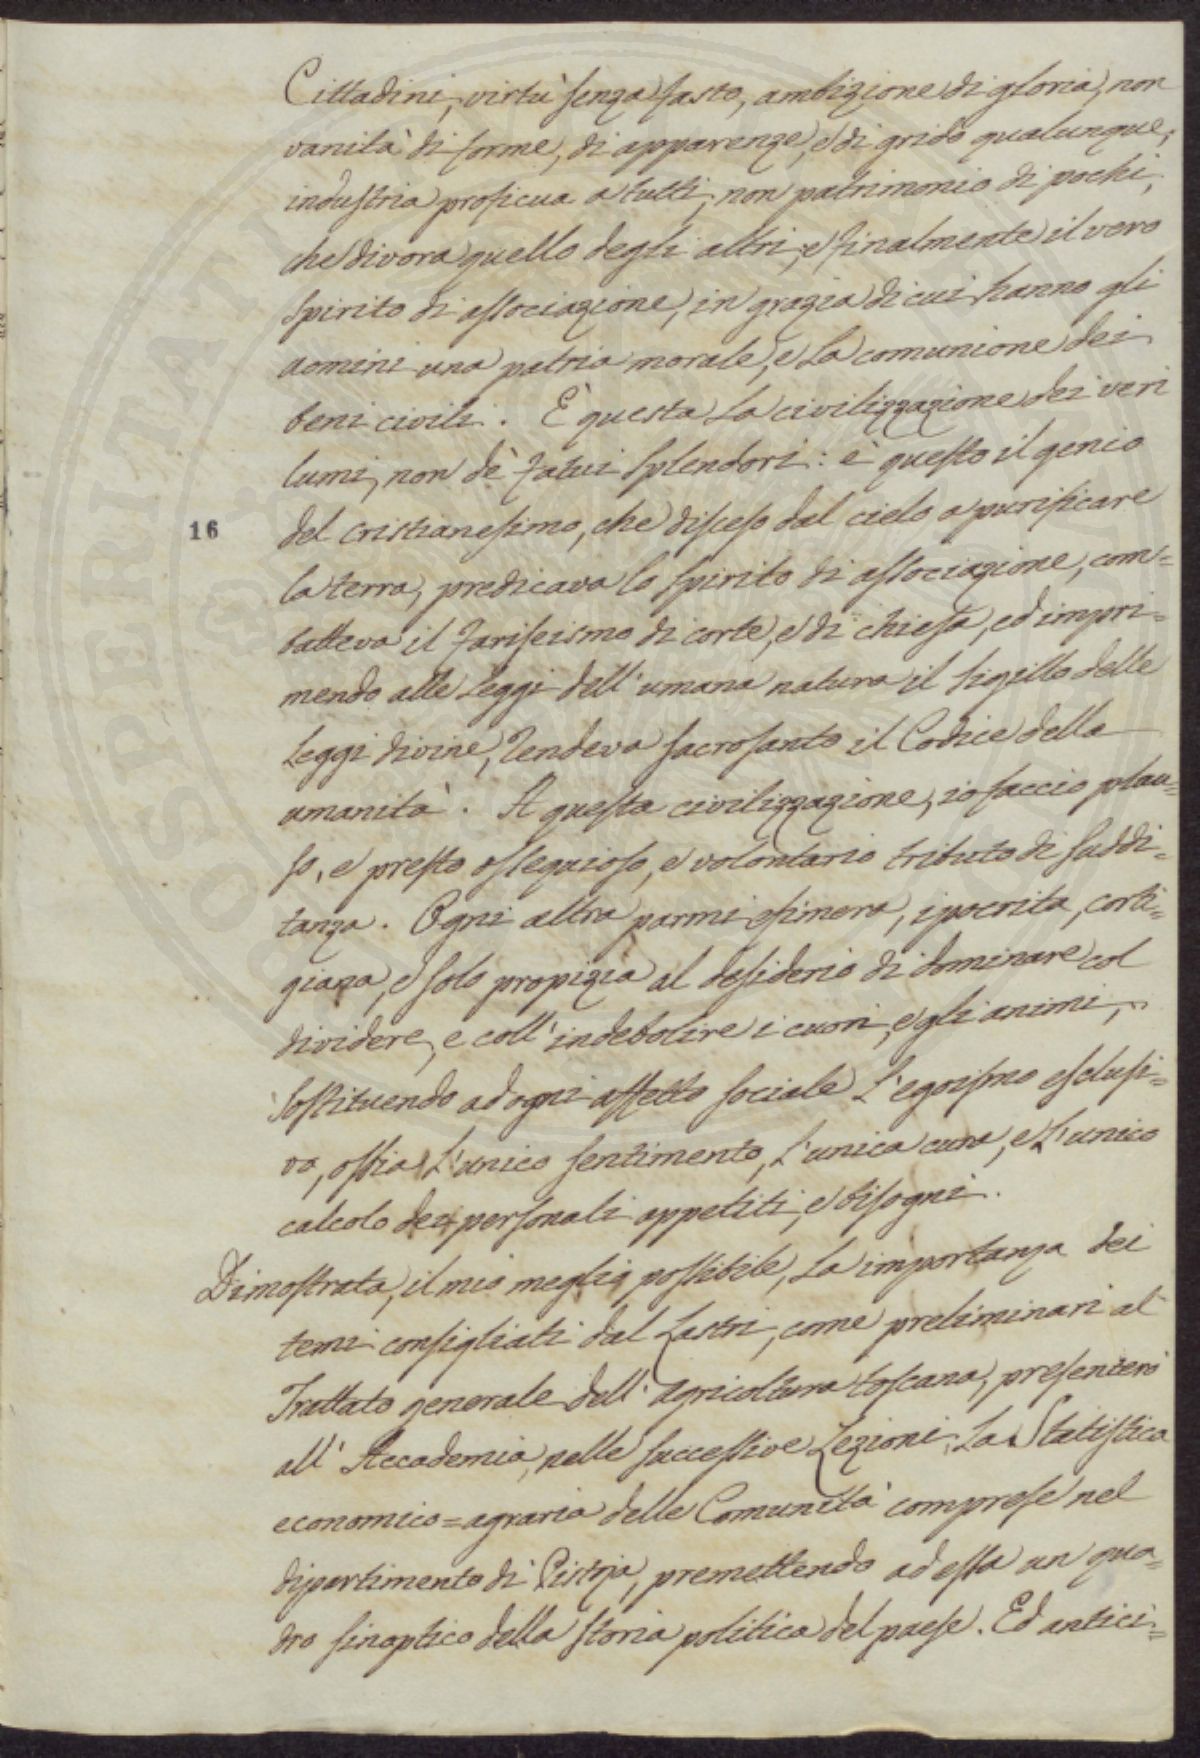 Cittadini, virtù senza fasto, ambizione di gloria, non
vanità di forme, di apparenze, e di grido qualunque,
industria proficua a tutti, non patrimonio di pochi,
che divora quello degli altri, e finalmente il vero
spirito di associazione, in grazia di cui hanno gli
uomini una patria morale, e la comunione dei
beni civili. È questa la civilizzazione dei veri
lumi, non dè fatui splendori: è questo il genio
16 del cristianesimo, che disceso dal cielo a purificare
la terra, predicava lo spirito di associazione, com=
batteva il fariseismo di corte, e di chiesa, ed impri=
mendo alle leggi dell'umana natura il sigillo delle
leggi divine, rendeva sacrosanto il Codice della
umanità. A questa civilizzazione, io faccio plau=
so, e presto ossequioso, e volontario tributo di suddi=
tanza. Ogni altra parmi efimera, ipocrita, corti=
giana, e solo propizia al desiderio di dominare col
dividere, e coll'indebolire i cuori, e gli animi,
sostituendo ad ogni affetto sociale l'egoismo esclusi=
vo, ossia l'unico sentimento, l'unica cura, e l'unico
calcolo dei personali appetiti, e bisogni.
Dimostrata, il mio meglio possibile, la importanza dei
temi consigliati dal Lastri, come preliminari al
Trattato generale dell'agricoltura toscana, presenterò
all'Accademia, nelle successive Lezioni, la Statistica
economico=agraria delle Comunità comprese nel
dipartimento di Pistoja, premettendo ad essa un qua=
dro sinoptico della storia politica del paese. Ed antici=
SOSPERITATI